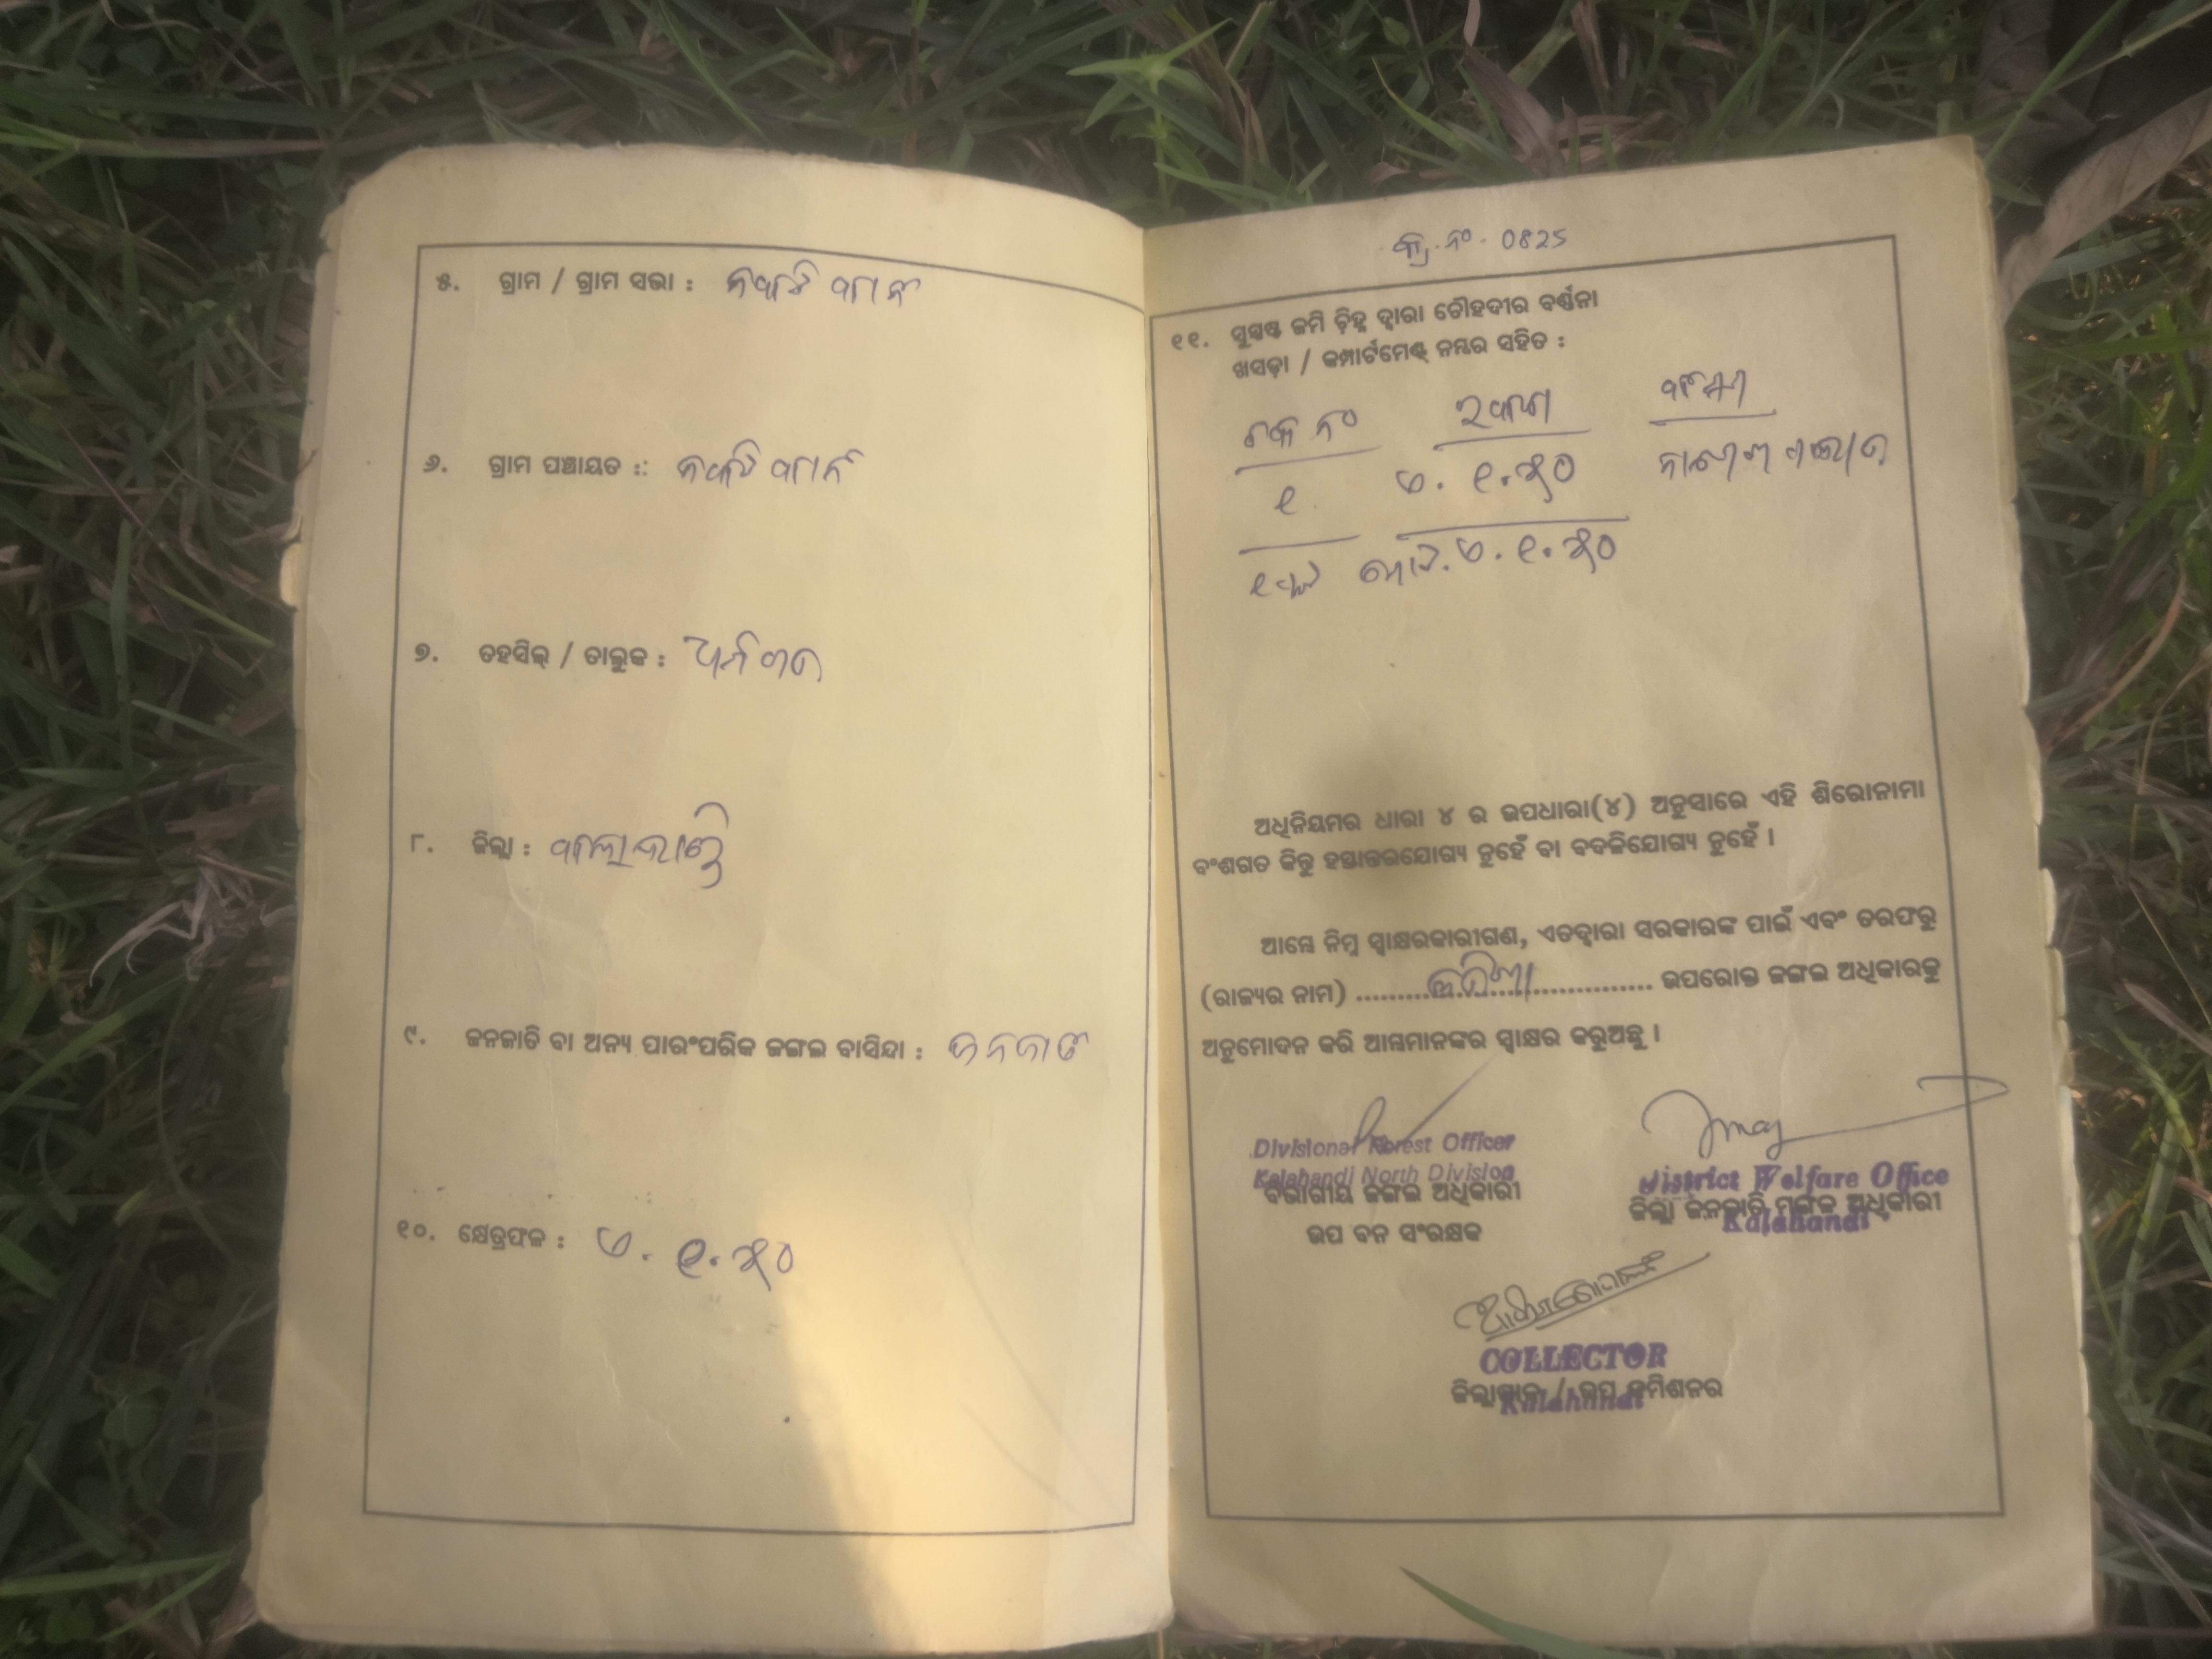 ୫. ଗ୍ରାମ / ଗ୍ରାମ ସଭା :
୬. ଗ୍ରାମ ପଞ୍ଚାୟତ ::
୭. ତହସିଲ୍ / ତାଲୁକ :
୮. ଜିଲ୍ଲା : କଳାହାଣ୍ଡି
୯. ଜନଜାତି ବା ଅନ୍ୟ ପାରଂପରିକ ଜଙ୍ଗଲ ବାସିନ୍ଦା : ଜନଜାତି
୧୦. କ୍ଷେତ୍ରଫଳ : ଏ. ୧.୫୦
କ୍ର.ନଂ. 0825
୧୧. ସୁସ୍ପଷ୍ଟ ଜମି ଚିହ୍ନ ଦ୍ୱାରା ଚୌହଦୀର ବର୍ଣ୍ଣନା
ଖସଡ଼ା / କମ୍ପାର୍ଟମେଣ୍ଟ୍ ନମ୍ବର ସହିତ :
ନଂ
୧ ଏ. ୧.୫୦
ଏ. ୧.୫୦
ଅଧିନିୟମର ଧାରା ୪ ର ଉପଧାରା(୪) ଅନୁସାରେ ଏହି ଶିରୋନାମା
ବଂଶଗତ କିନ୍ତୁ ହସ୍ତାନ୍ତରଯୋଗ୍ୟ ନୁହେଁ ବା ବଦଳିଯୋଗ୍ୟ ନୁହେଁ ।
ଆମ୍ଭେ ନିମ୍ନ ସ୍ୱାକ୍ଷରକାରୀଗଣ, ଏତଦ୍ୱାରା ସରକାରଙ୍କ ପାଇଁ ଏବଂ ତରଫରୁ
(ରାଜ୍ୟର ନାମ) ........ଓଡିଶା........ ଉପରୋକ୍ତ ଜଙ୍ଗଲ ଅଧିକାରକୁ
ଅନୁମୋଦନ କରି ଆମ୍ଭମାନଙ୍କର ସ୍ୱାକ୍ଷର କରୁଅଛୁ ।
Divisional Forest Officer
Kalahandi North Division
ବିଭାଗୀୟ ଜଙ୍ଗଲ ଅଧିକାରୀ
ଉପ ବନ ସଂରକ୍ଷକ
District Welfare Office
ଜିଲ୍ଲା ଜନଜାତି ମଙ୍ଗଳ ଅଧିକାରୀ
Kalahandi
COLLECTOR
ଜିଲ୍ଲାପାଳ / ଉପ କମିଶନର
Kalahandi